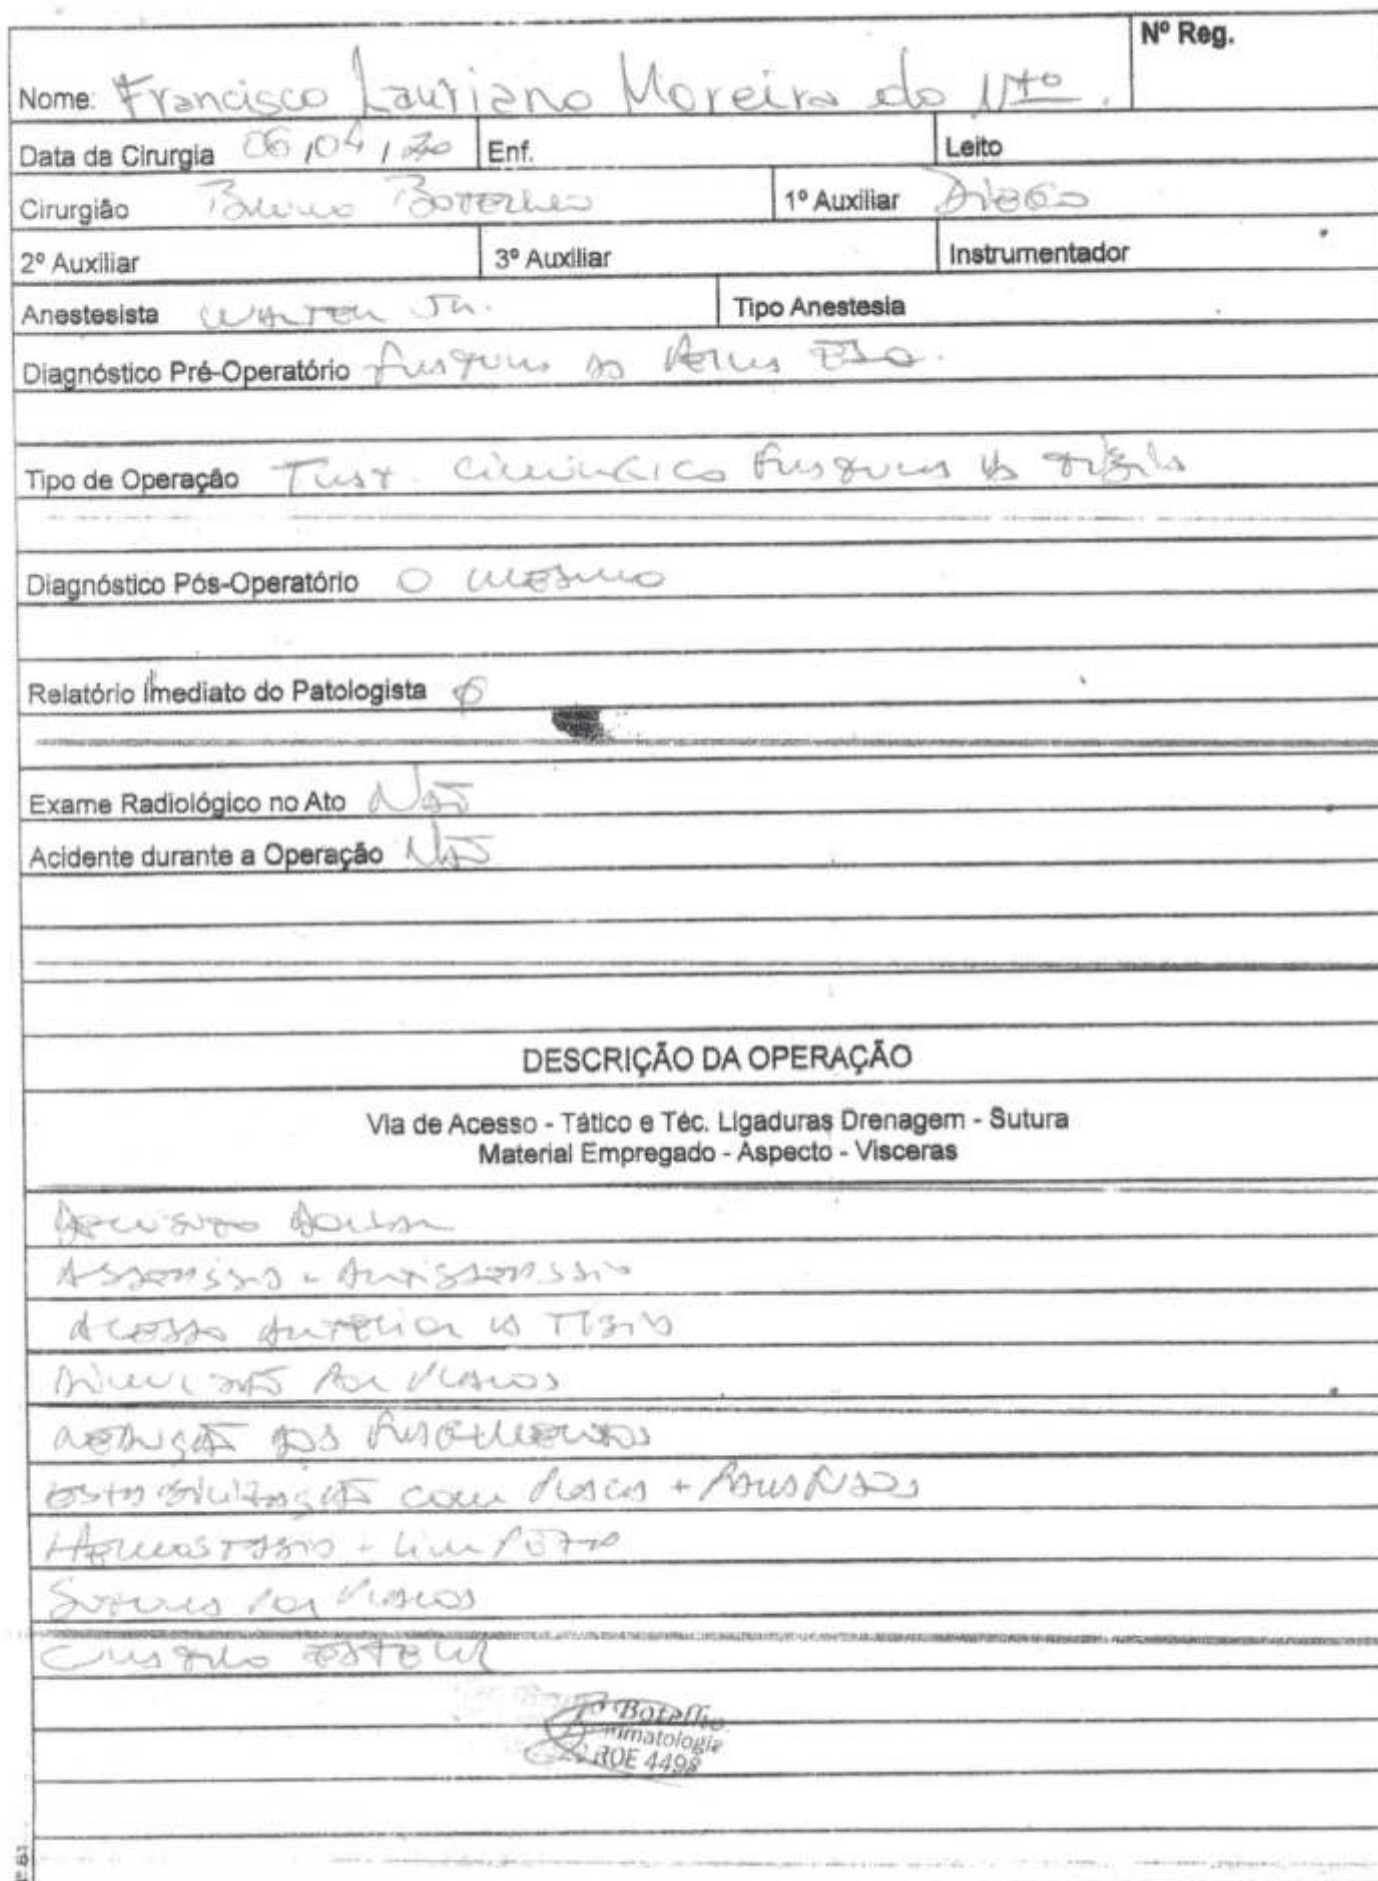 Nº Reg.
Nome: Francisco Lauriano Moreira do Nto.
Data da Cirurgia 06,04,20 Enf. Leito
Cirurgião Bruno Botelho 1º Auxiliar Diego
2º Auxiliar 3º Auxiliar Instrumentador
Anestesista Walter Jr. Tipo Anestesia
Diagnóstico Pré-Operatório Fratura da Perna Esq.
Tipo de Operação Trat. Cirúrgico Fratura da Tíbia
Diagnóstico Pós-Operatório O mesmo
Relatório Imediato do Patologista
Exame Radiológico no Ato Não
Acidente durante a Operação Não
DESCRIÇÃO DA OPERAÇÃO
Via de Acesso - Tático e Téc. Ligaduras Drenagem - Sutura
Material Empregado - Aspecto - Visceras
Decúbito Dorsal
Assepsia + Antissepsia
Acesso Anterior da Tíbia
Por Planos
Redução dos Fragmentos
Estabilização com Placa + Parafusos
Hemostasia + Limpeza
Sutura por Planos
Curativo Estéril
Botelho
ROE 4498